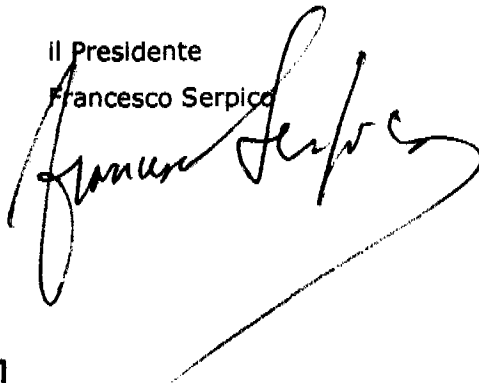 il Presidente
Francesco Serpico
Francesco Serpico
]